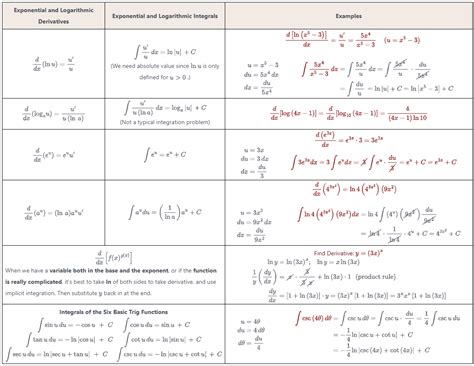 Exponential and Logarithmic Derivatives
Exponential and Logarithmic Integrals
Examples
d/dx (ln u) = u'/u
∫ u'/u dx = ln |u| + C
(We need absolute value since ln u is only defined for u > 0.)
d [ln (x⁵ − 3)]/dx = u'/u = 5x⁴/(x⁵ − 3) (u = x⁵ − 3)
u = x⁵ − 3
du = 5x⁴ dx
dx = du/5x⁴
= ln |u| + C = ln |x⁵ − 3| + C
d/dx (logₐ u) = u'/(u (ln a))
∫ u'/(u (ln a)) dx = logₐ |u| + C
(Not a typical integration problem)
d/dx [log (4x − 1)] = d/dx [log₁₀ (4x − 1)] = 4/((4x − 1) ln 10)
d/dx (eᵘ) = eᵘu'
∫ eᵘ = eᵘ + C
d (e³ˣ)/dx = e³ˣ · 3 = 3e³ˣ
u = 3x
du = 3 dx
dx = du/3
∫ 3e³ˣdx = 3 ∫ eᵘ dx = 3 ∫ eᵘ · du/3 = eᵘ + C = e³ˣ + C
d/dx (aᵘ) = (ln a)aᵘu'
∫ aᵘdu = (1/ln a) aᵘ + C
u = 3x³
du = 9x² dx
dx = du/9x²
d/dx [f(x)^g(x)]
When we have a variable both in the base and the exponent, or if the function
is really complicated, it's best to take ln of both sides to take derivative, and use
implicit integration. Then substitute y back in at the end.
Find Derivative: y = (3x)ˣ
ln y = ln (3x)ˣ, ln y = x ln (3x)
+ ln (3x) · 1 (product rule)
dy/dx = [1 + ln (3x)] · y = (3x)ˣ [1 + ln (3x)] = 3ˣxˣ [1 + ln (3x)]
Integrals of the Six Basic Trig Functions
∫ sin u du = − cos u + C ∫ cos u du = sin u + C
∫ tan u du = − ln |cos u| + C ∫ cot u du = ln |sin u| + C
∫ sec u du = ln |sec u + tan u| + C ∫ csc u du = − ln |csc u + cot u| + C
u = 4θ
du = 4 dθ
dθ = du/4
∫ csc (4θ) dθ = ∫ csc u · du/4 = 1/4 ∫ csc u du
= −1/4 ln |csc u + cot u| + C
= −1/4 ln |csc (4x) + cot (4x)| + C